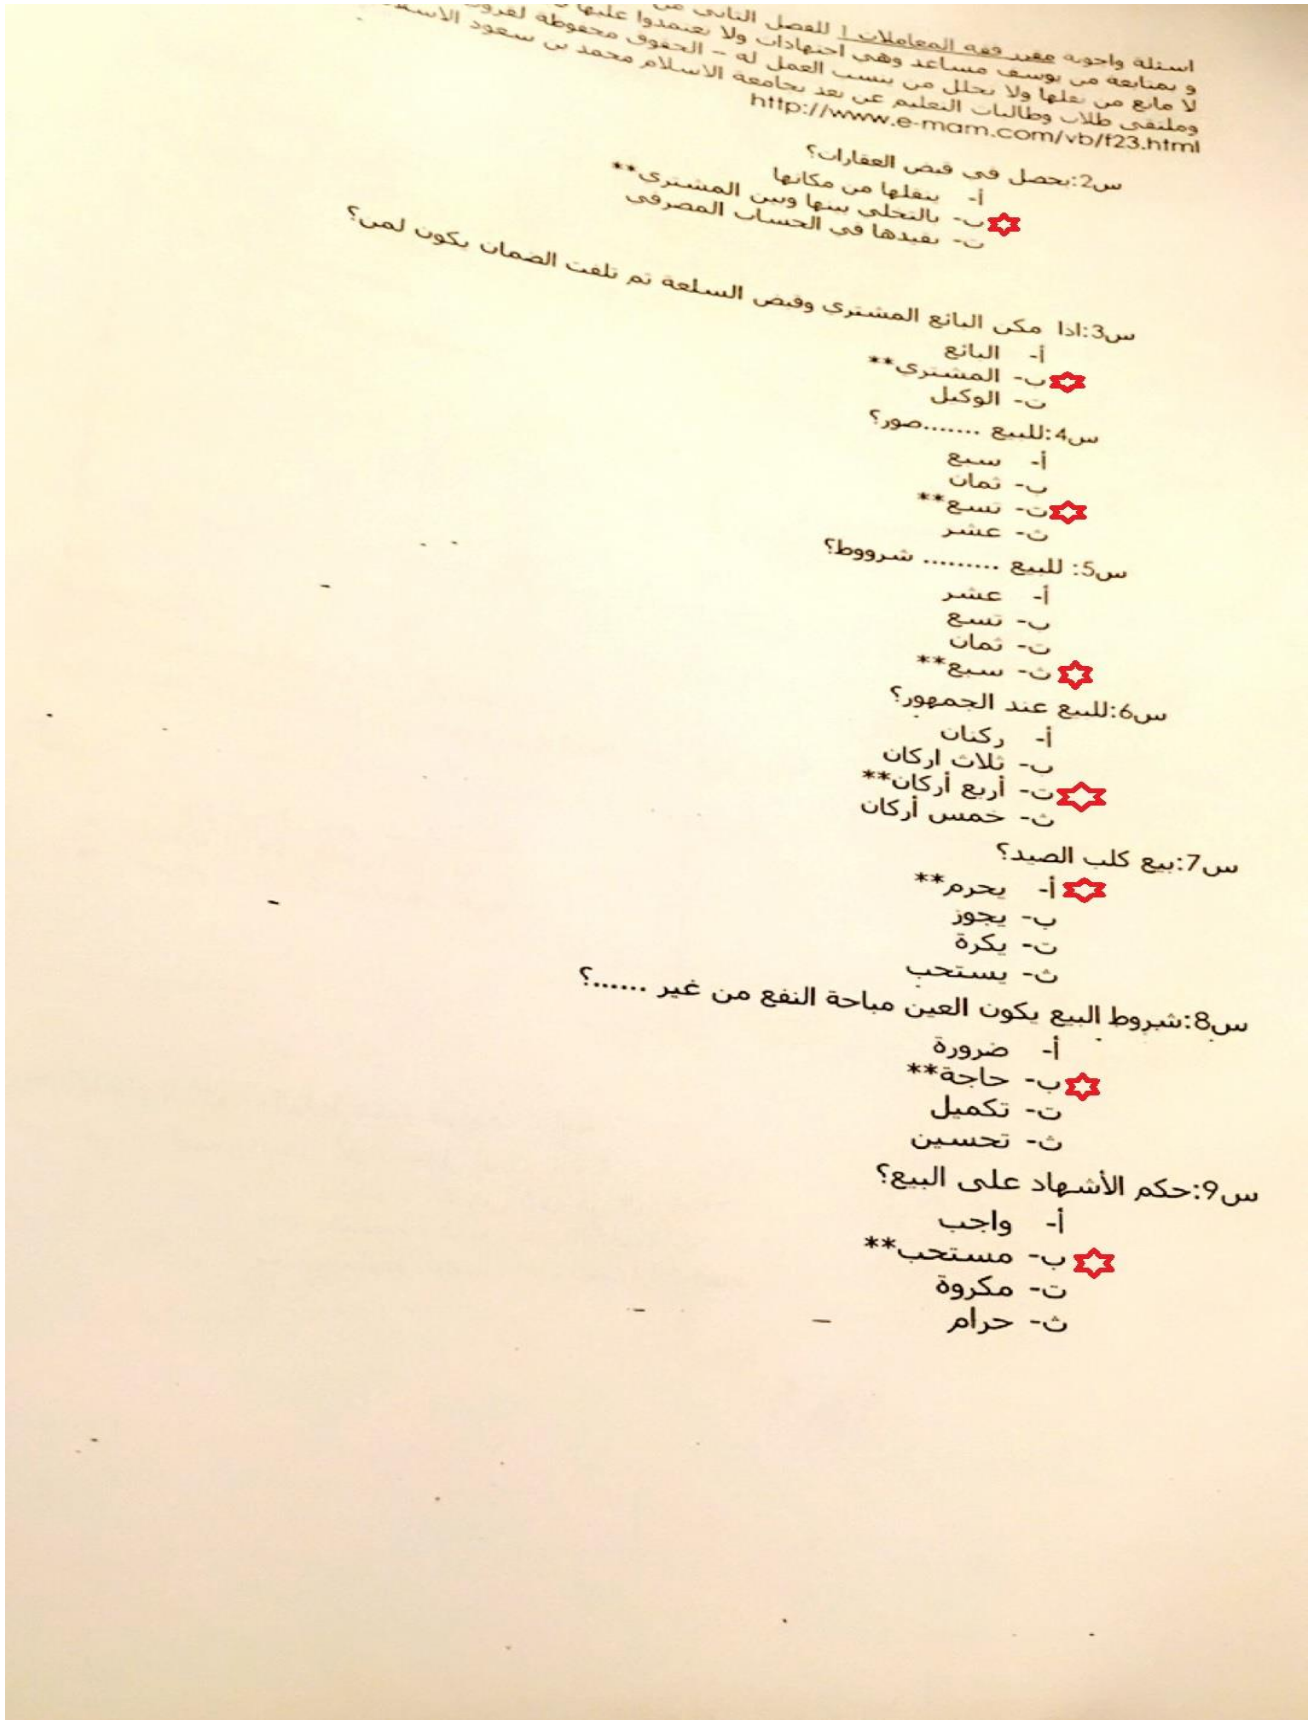 اسئلة واجوبة مقرر فقه المعاملات 1 للفصل الثاني من
و بمتابعة من يوسف مساعد وهي اجتهادات ولا تعتمدوا عليها
لا مانع من نقلها ولا نحلل من ينسب العمل له – الحقوق محفوظة
وملتقى طلاب وطالبات التعليم عن بعد بجامعة الاسلام محمد بن سعود
http://www.e-mam.com/vb/f23.html
س2:يحصل في قبض العقارات؟
أ- بنقلها من مكانها
ب- بالتخلي بينها وبين المشتري**
ت- بقيدها في الحساب المصرفي
س3:اذا مكن البائع المشتري وقبض السلعة ثم تلفت الضمان يكون لمن؟
أ- البائع
ب- المشتري**
ت- الوكيل
س4:للبيع .......صور؟
أ- سبع
ب- ثمان
ت- تسع**
ث- عشر
س5: للبيع ......... شرووط؟
أ- عشر
ب- تسع
ت- ثمان
ث- سبع**
س6:للبيع عند الجمهور؟
أ- ركنان
ب- ثلاث اركان
ت- أربع أركان**
ث- خمس أركان
س7:بيع كلب الصيد؟
أ- يحرم**
ب- يجوز
ت- يكرة
ث- يستحب
س8:شروط البيع يكون العين مباحة النفع من غير ......؟
أ- ضرورة
ب- حاجة**
ت- تكميل
ث- تحسين
س9:حكم الأشهاد على البيع؟
أ- واجب
ب- مستحب**
ت- مكروة
ث- حرام